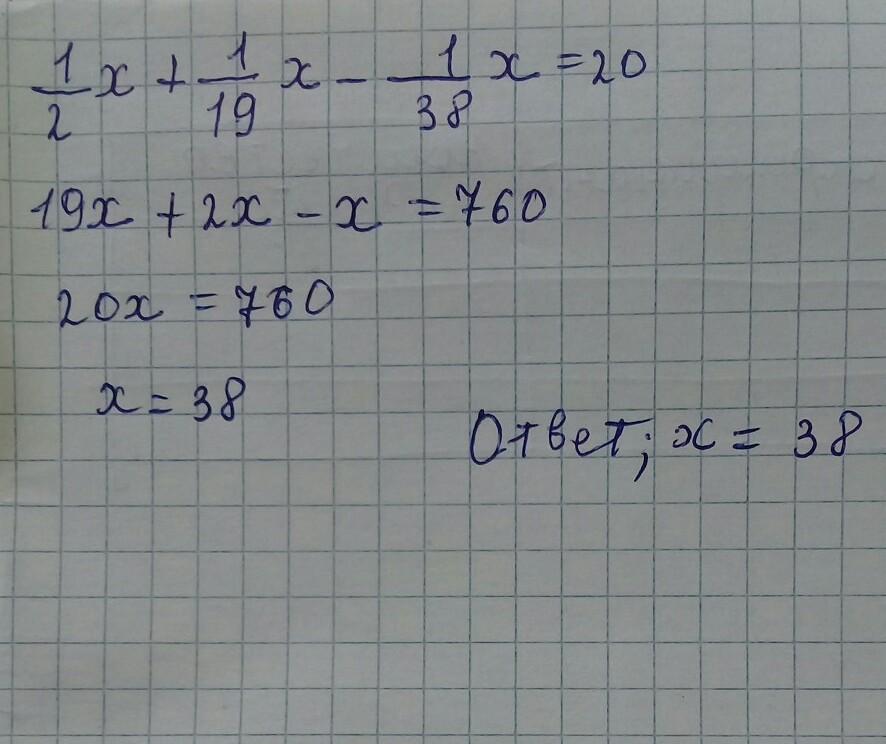 1/2 x + 1/19 x - 1/38 x = 20
19x + 2x - x = 760
20x = 760
x = 38
Ответ; x = 38